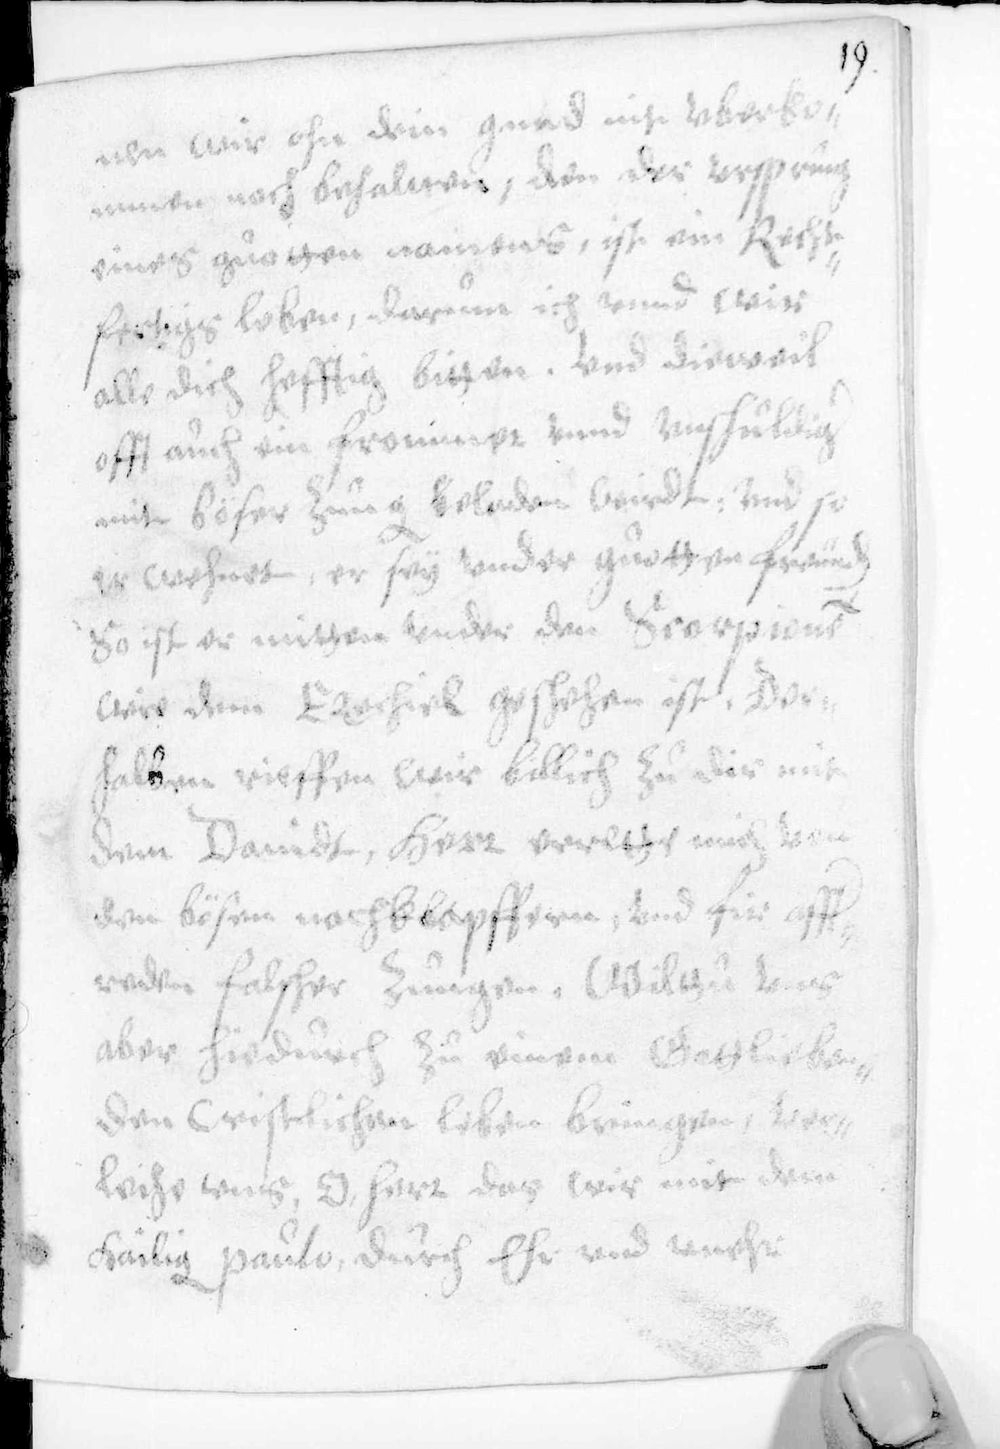 19.
nen wir ohn dein gnad nit vberko„
mmen noch behaltten, den der vrsprung
eines guotten namens, ist ein Recht„
fertigs leben, darumm ich vnnd wir
alle dich hefftig bitten. Vnd dieweil
offt auch ein frommer vnnd vnschuldig
mit böser zung beladen wirdt: vnd so
er wehnet, er sey vnder guotten freünd
So ist er mitten vnder den Scorpionē
wie dem Ezechiel geschehen ist. Der„
halben rieffen wir billich zu dir mit
dem Dauidt, Herr errette mich von
den bösen nachklapffern, vnd für afft„
reden falscher zungen. Wiltu vns
aber hiedurch zu einem Gottlieben„
den Cristlichen leben bringen, ver„
leihe vns, O herr das wir mit dem
Hailig paulo, durch Ehr vnd vnehr